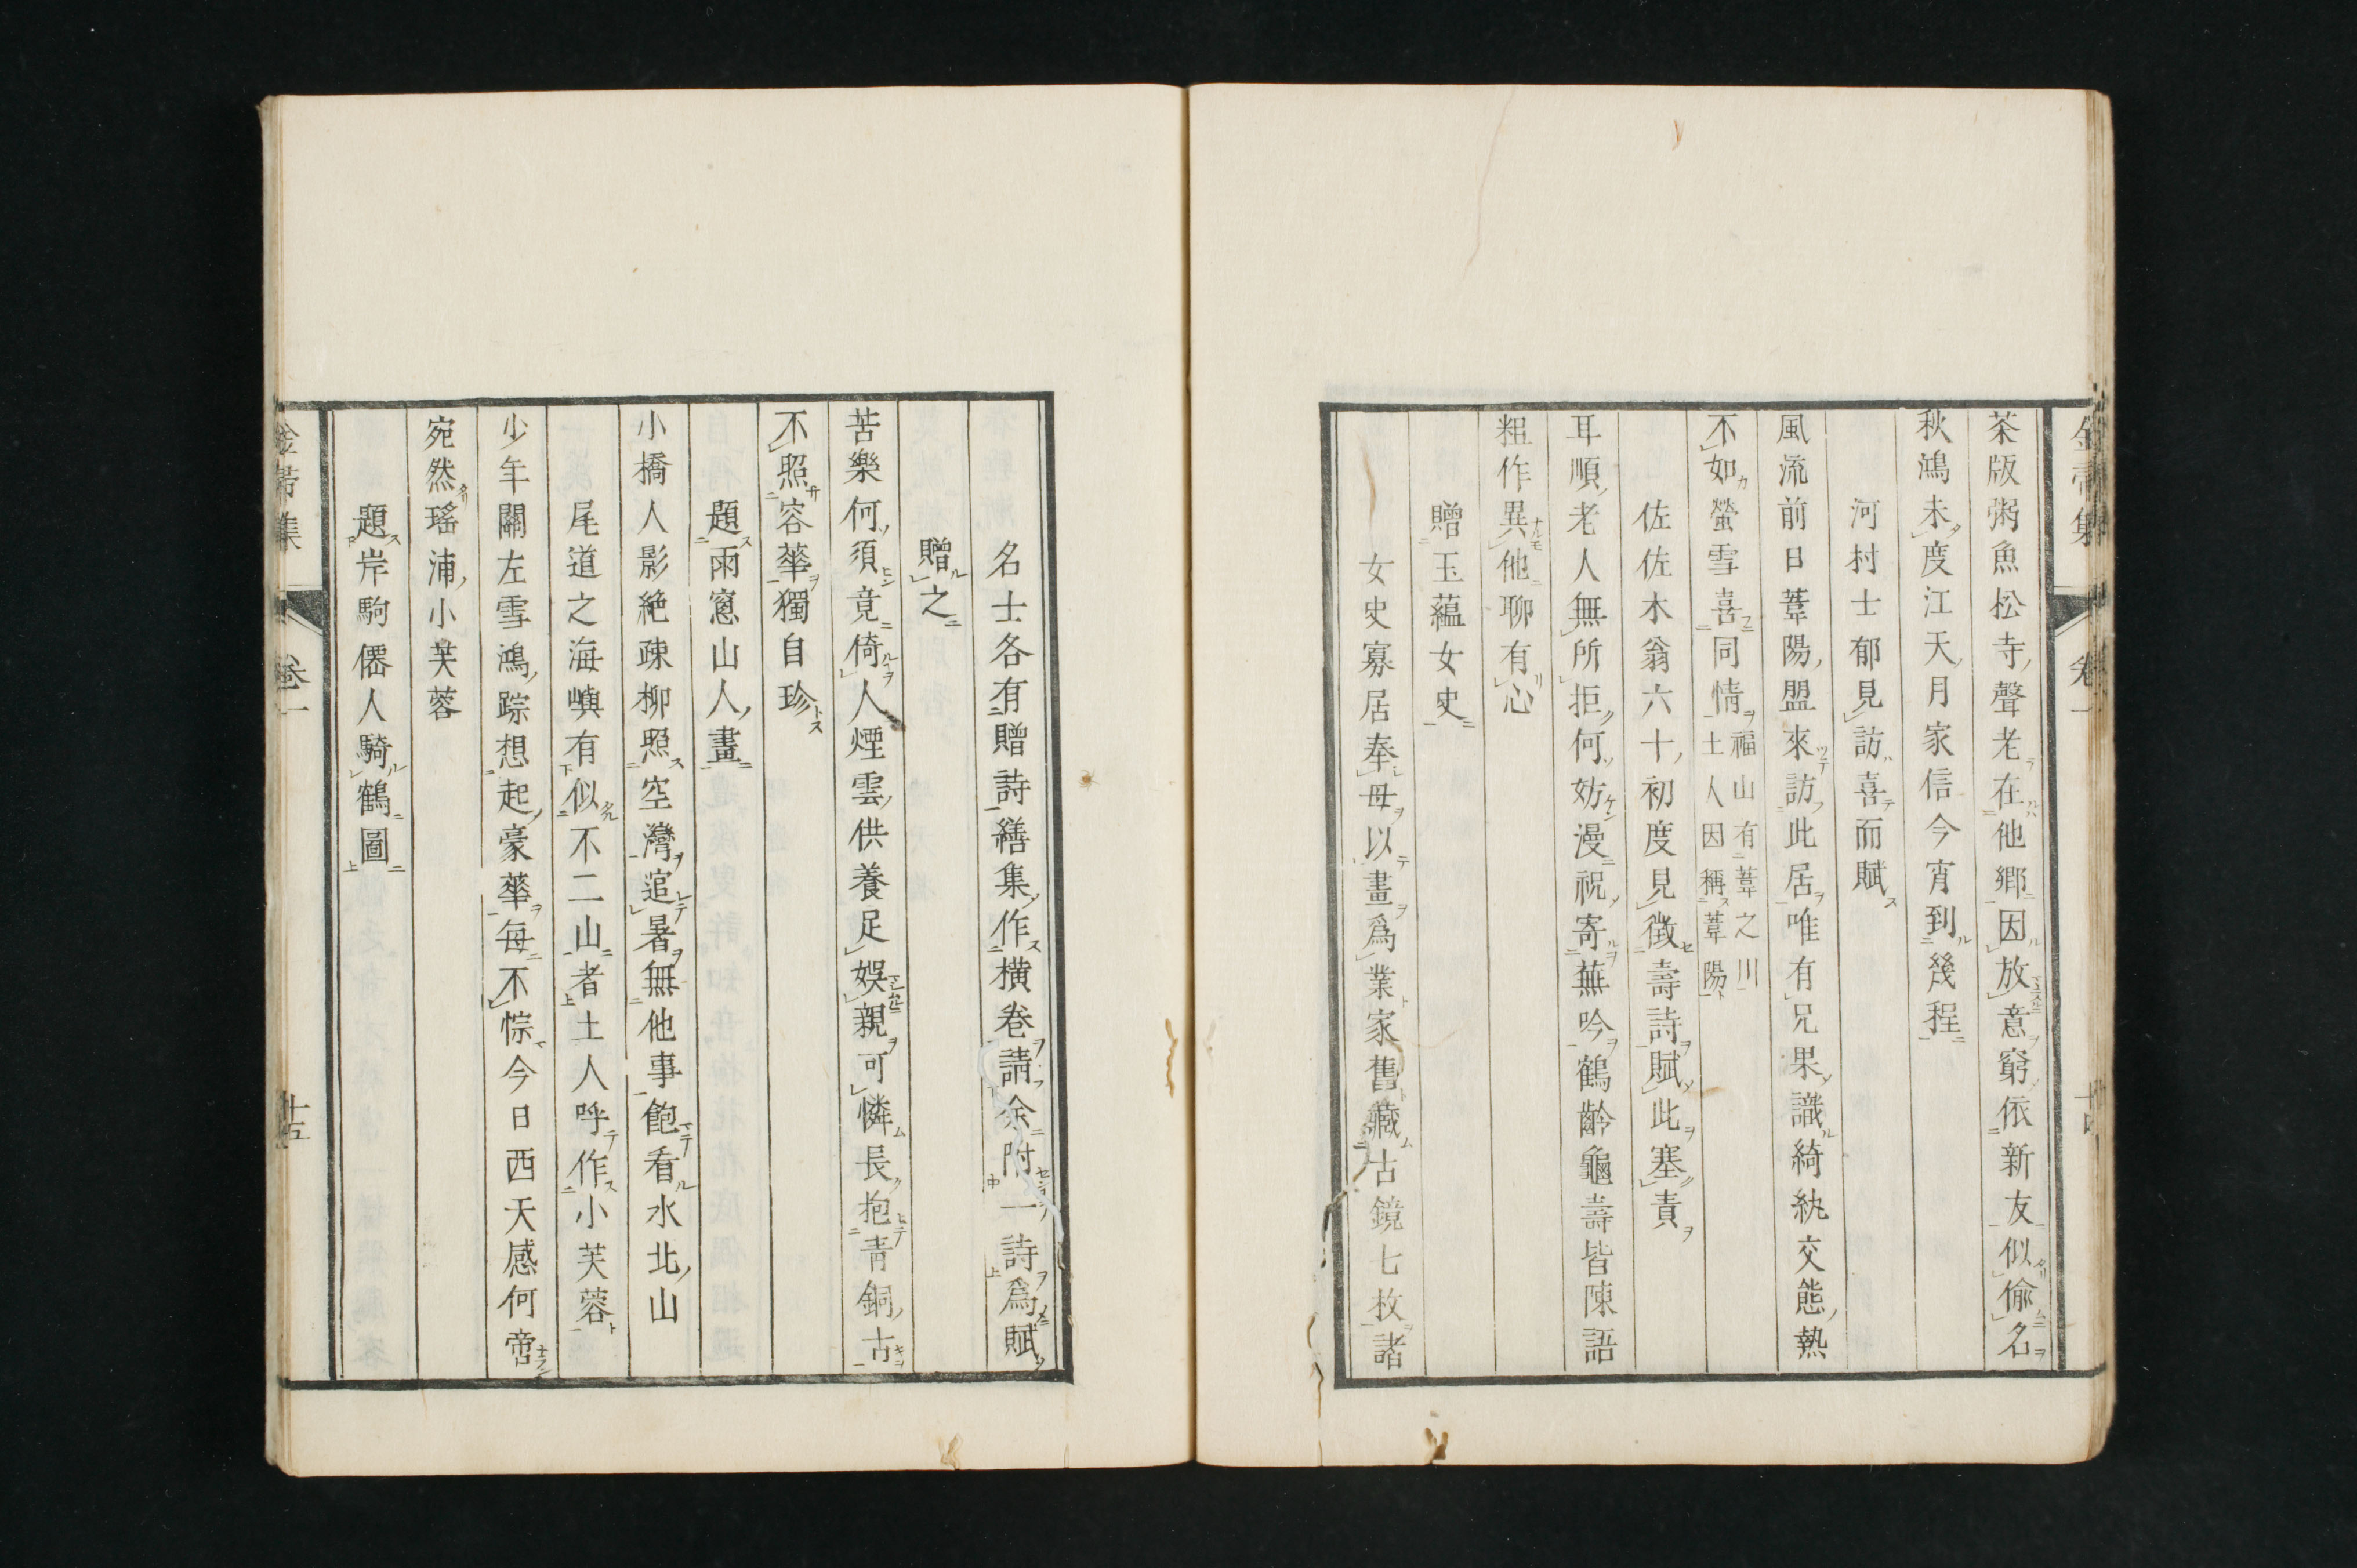 茶版粥魚松寺聲老在他郷因放意窮依新友似偷名
秋鴻未度江天月家信今宵到幾程
河村士郁見訪喜而賦
風流前日葦陽盟來訪此居唯有兄果識綺紈交態熱
不如螢雪喜同情福山有葦之川土人因稱葦陽
佐佐木翁六十初度見徴壽詩賦此塞責
耳順老人無所拒何妨漫祝寄蕪吟鶴齡龜壽皆陳語
粗作異他聊有心
贈玉蘊女史
女史寡居奉母以畫爲業家舊藏古鏡七枚諸
名士各有贈詩繕集作横卷請余附一詩爲賦
贈之
苦樂何須竟倚人煙雲供養足娯親可憐長抱青銅古
不照容華獨自珍
題雨窓山人畫
小橋人影絶疎柳照空灣逭暑無他事飽看水北山
尾道之海嶼有似不二山者土人呼作小芙蓉
少年關左雪鴻踪想起豪華毎不悰今日西天感何啻
宛然瑤浦小芙蓉
題岸駒僊人騎鶴圖
集
卷一
十五